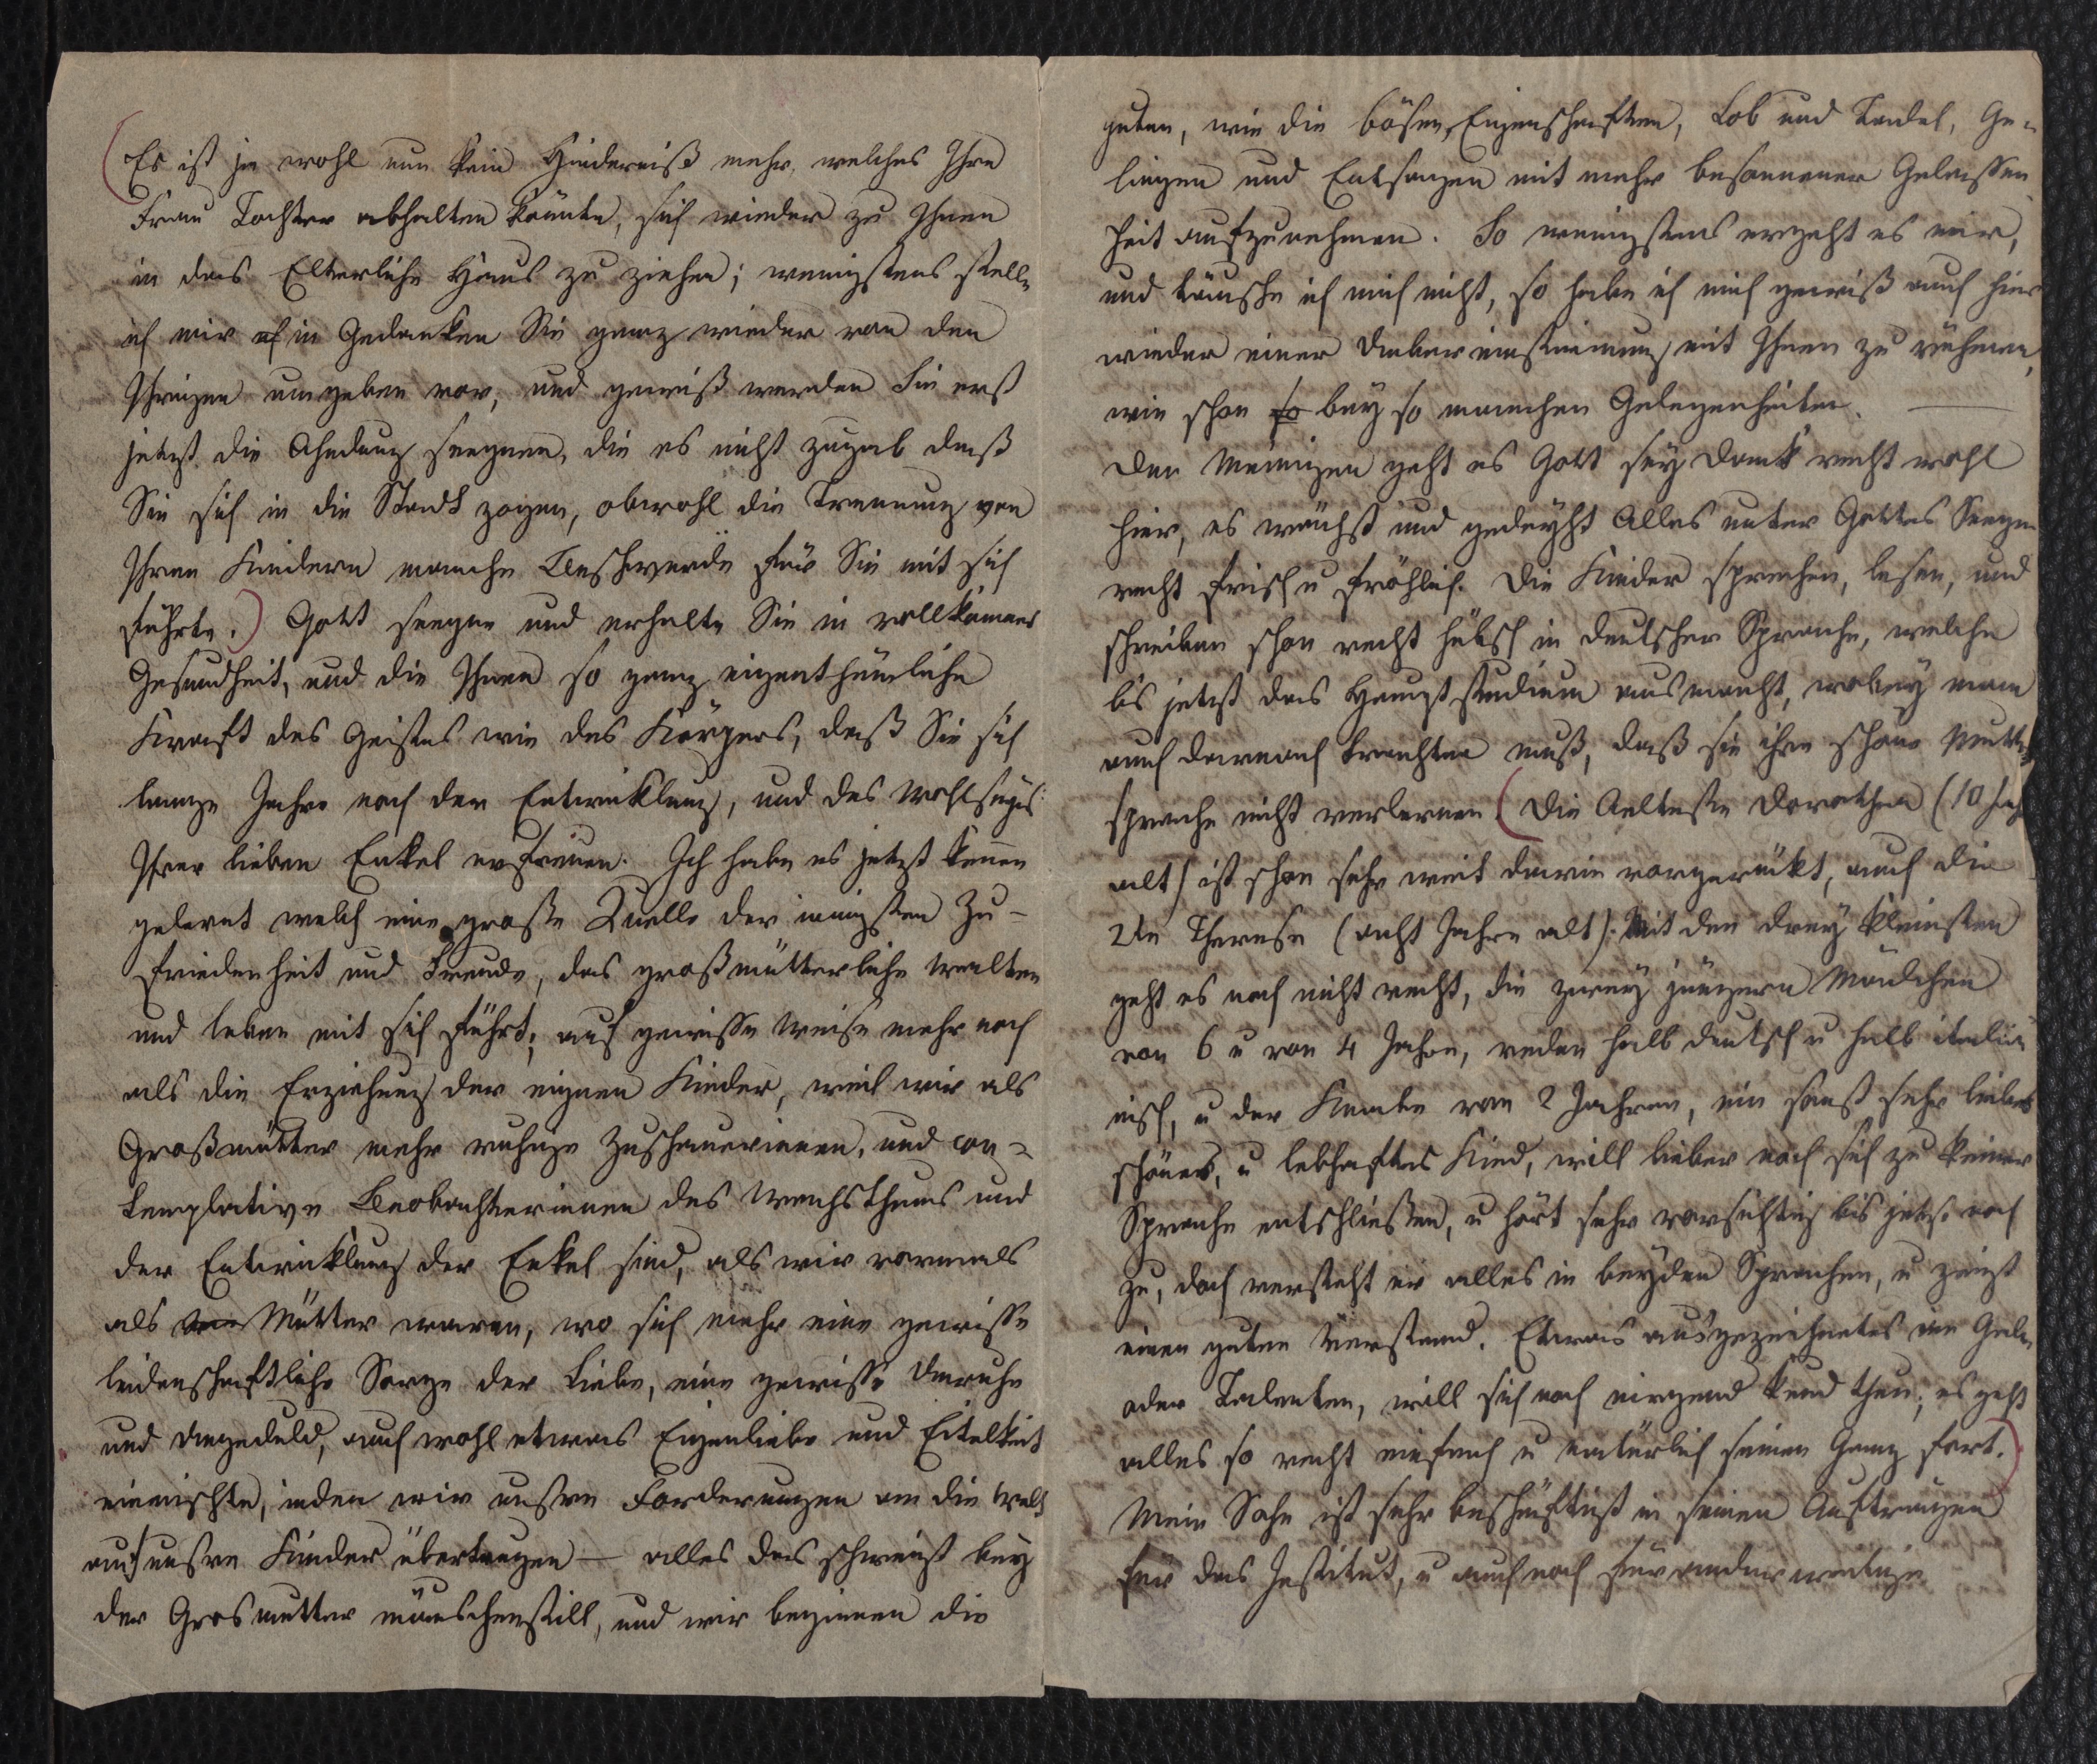 (Es ist ja wohl nun kein Hinderniß mehr, welches Ihre
Frau Tochter abhalten könnte, sich wieder zu Ihnen
in das Elterliche Haus zu ziehen; wenigstens stelle
ich mir in Gedanken Sie ganz wieder von den
Ihrigen umgeben vor, und gewiß werden Sie erst
jetzt die Ahndung seegnen, die es nicht zugab daß
Sie sich in die Stadt zogen, obwohl die Trennung von
Ihren Kindern manche Beschwerde für Sie mit sich
führte.) Gott seegne und erhalte Sie in vollkomner
Gesundheit, und die Ihnen so ganz eigenthümliche
Kraft des Geistes wie des Körpers, daß Sie sich
lange Jahre noch der Entwicklung, und des Wohlseyns
Ihrer lieben Enkel erfreuen. Ich habe es jetzt kennen
gelernt welch eine große Quelle der innigsten Zu-
friedenheit und Freude, das großmütterliche walten
und leben mit sich führt; auf gewisse Weise mehr noch
als die Erziehung der eignen Kinder, weil wir als
Großmütter mehr ruhige Zuschauerinnen, und con-
templative Beobachterinnen des Wachsthums und
der Entwicklung der Enkel sind, als wir vormals
als Mütter waren, wo sich mehr eine gewisse
leidenschaftliche Sorge der Liebe, eine gewisse Unruhe
und Ungeduld, auch wohl etwas Eigenliebe und Eitelkeit
einmischte, inden wir unsre Forderungen an die Welt
auf unsre Kinder übertragen – alles das schweigt bey
der Grosmutter mäuschenstill, und wir beginnen die
guten, wie die bösen Eigenschaften, Lob und Tadel, Ge-
lingen und Entsagen mit mehr besonnener Gelassen
heit aufzunehmen. So wenigstens ergeht es mir,
und täusche ich mich nicht, so habe ich mich gewiß auch hier
wieder einer Uebereinstimmung mit Ihnen zu rühmen,
wie schon so bey so manchen Gelegenheiten. —
Den Meinigen geht es Gott sey Dank recht wohl
hier, es wächst und gedeyht Alles unter Gottes Seegen
recht frisch u fröhlich. Die Kinder sprechen, lesen, und
schreiben schon recht hübsch in deutscher Sprache, welche
bis jetzt das Hauptstudium ausmacht, wobey man
auch darnach trachten muß, daß sie ihre schöne Mutter
sprache nicht verlernen. (Die Aelteste Dorothea (10 Jahr
alt) ist schon sehr weit darin vorgerückt, auch die
2te Therese (acht Jahre alt). Mit den drey kleinsten
geht es noch nicht recht, die zwey jüngern Mädchen
von 6 u von 4 Jahren, reden halb deutsch u halb italiä
nisch, u der Knabe von 2 Jahren, ein sonst sehr liebes
schönes, u lebhaftes Kind, will lieber noch sich zu keiner
Sprache entschließen, u hört sehr vorsichtig bis jetzt noch
zu, doch versteht er alles in beyden Sprachen, u zeigt
einen guten Verstand. Etwas ausgezeichnetes an
oder Talenten, will sich noch nirgend kund thun; es geht
alles so recht einfach u natürlich seinen Gang fort.)
Mein Sohn ist sehr beschäftigt in seinen Aufträgen
für das Institut, u auch noch für anderweitige